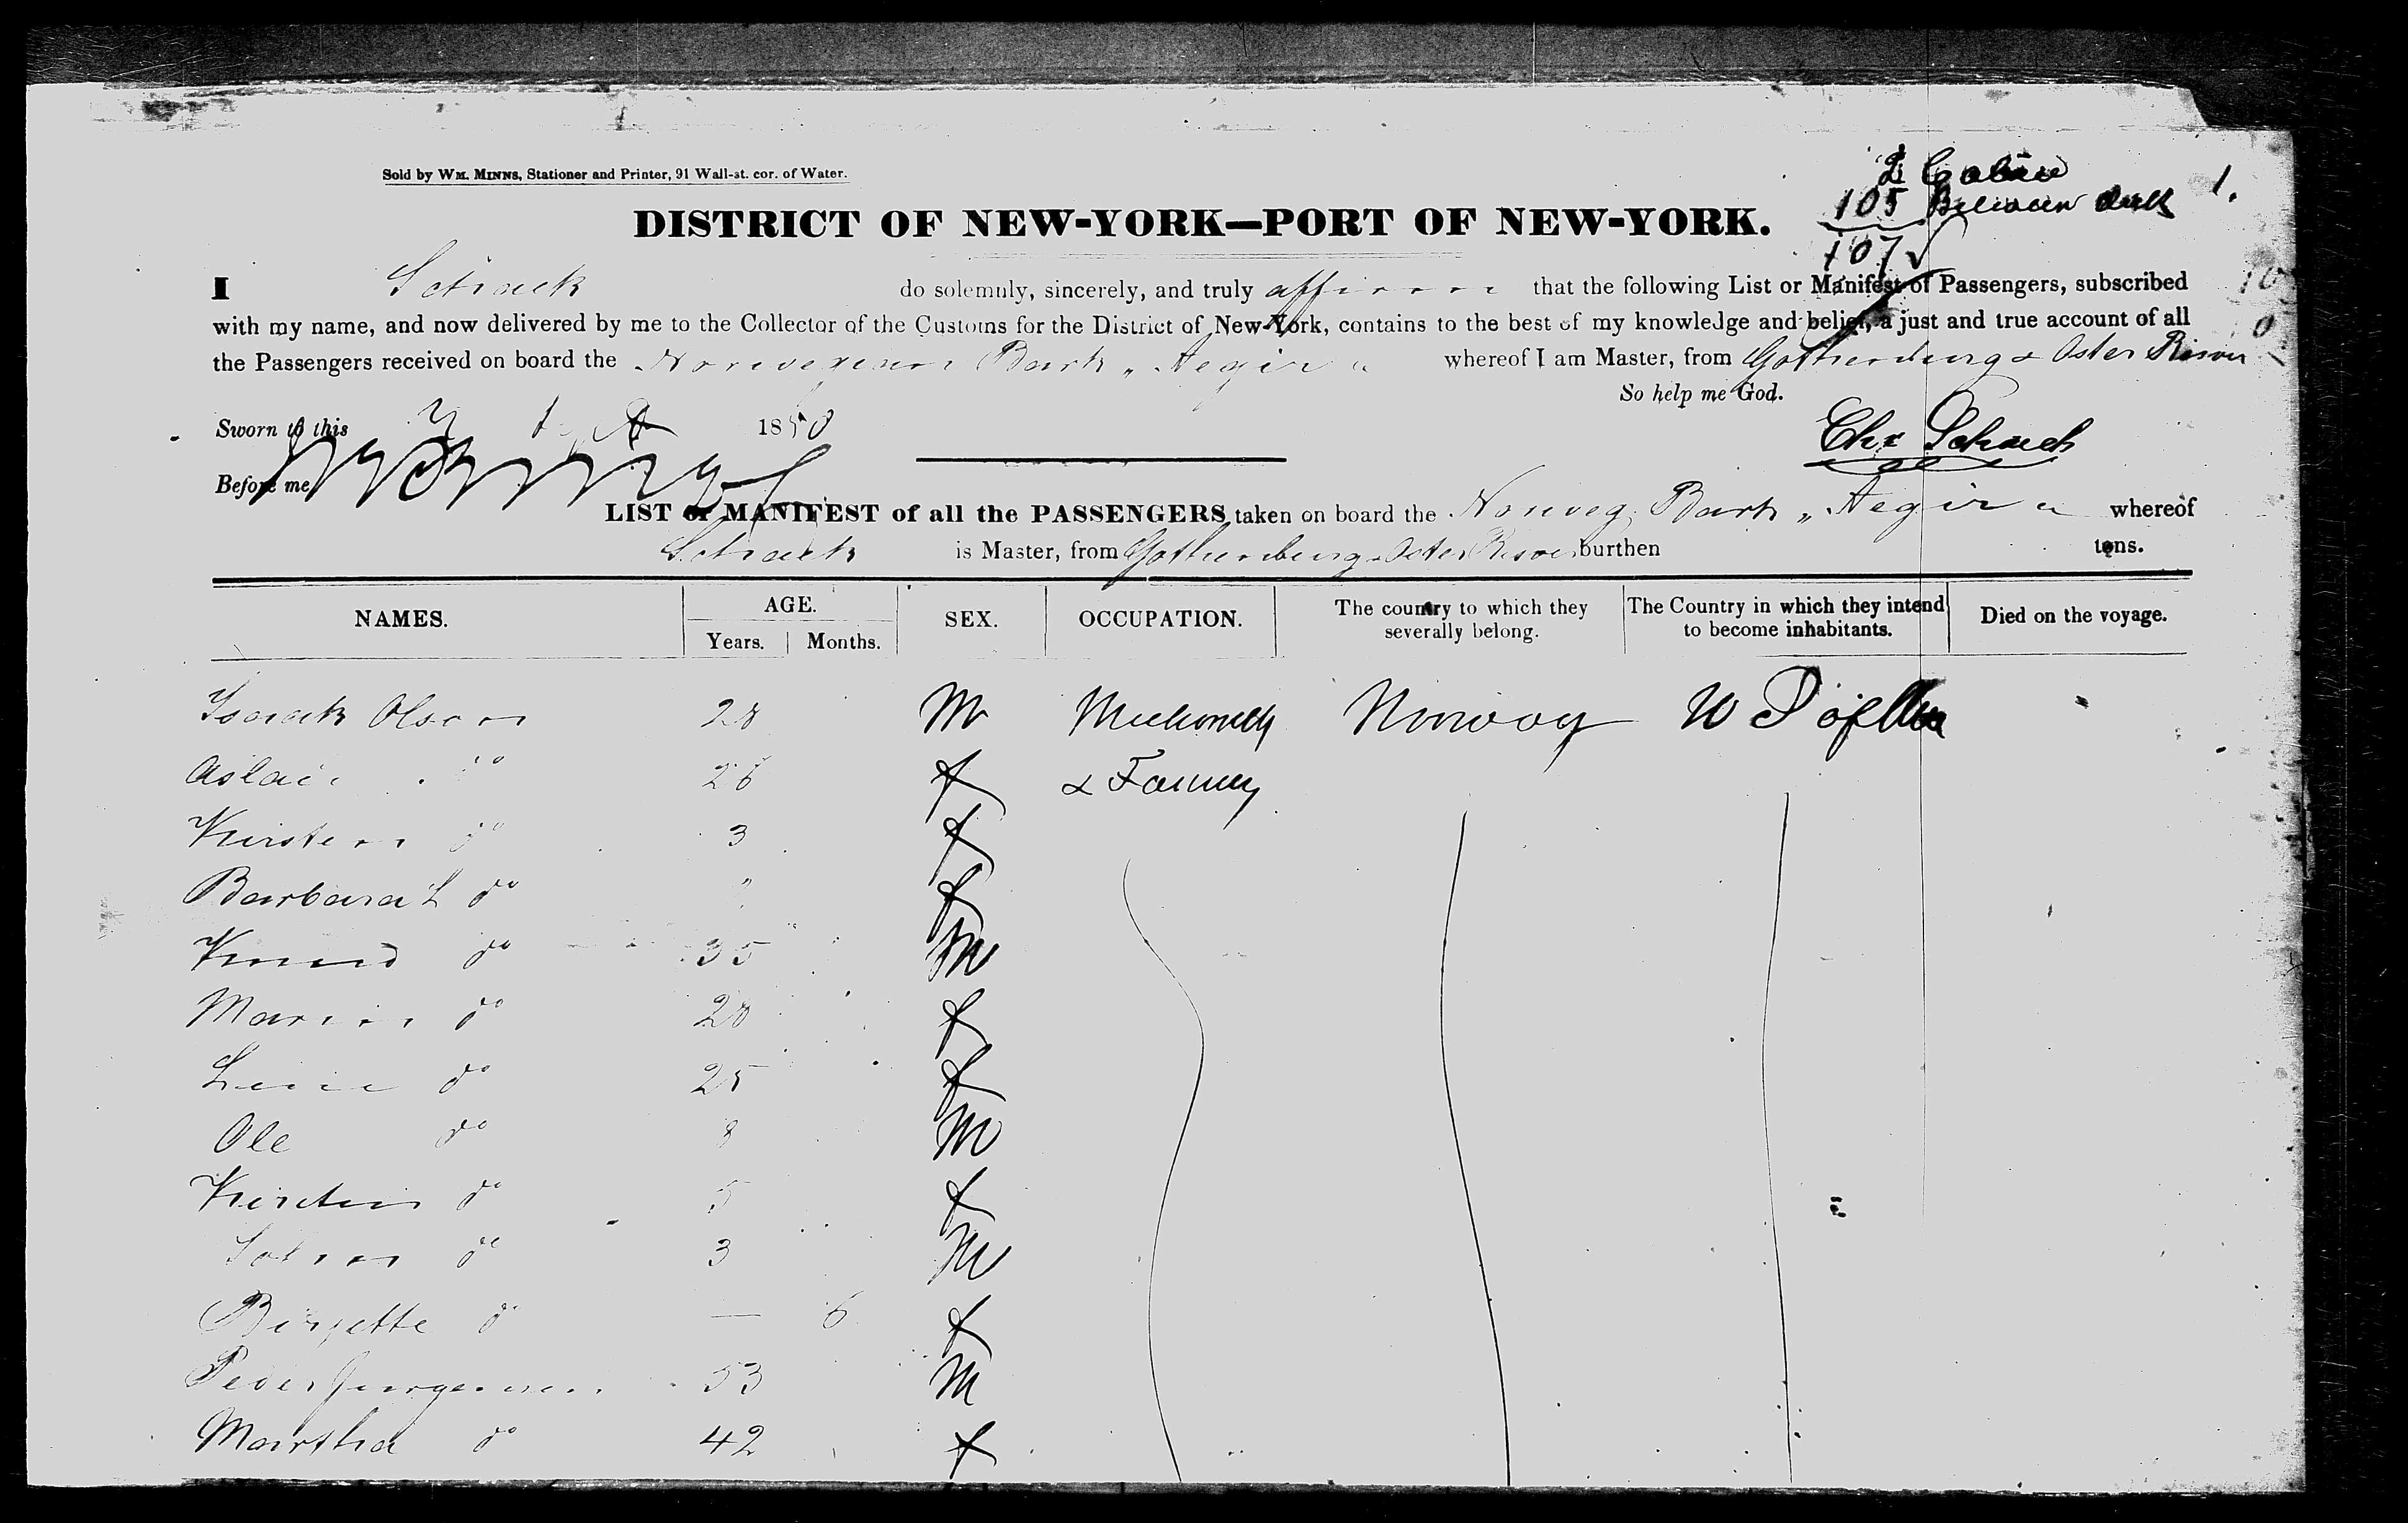 2 Cabin
105 Between deck 1.
107
Sold by WM. MINNS, Stationer and Printer, 91 Wall-st. cor. of Water.
DISTRICT OF NEW-YORK—PORT OF NEW-YORK.
I Schack do solemnly, sincerely, and truly affirm that the following List or Manifest of Passengers, subscribed
with my name, and now delivered by me to the Collector of the Customs for the District of New-York, contains to the best of my knowledge and belief, a just and true account of all
the Passengers received on board the Norwegian Bark „Aegir“ whereof I am Master, from Gothenburg & Oster Risoer
So help me God.
Sworn to this 1850
Chr Schack
Before me
LIST or MANIFEST of all the PASSENGERS taken on board the Norweg. Bark „Aegir“ whereof
Schack is Master, from Gothenburg & Oster Risoer burthen tons.
NAMES. AGE. Years. Months. SEX. OCCUPATION. The country to which they severally belong. The Country in which they intend to become inhabitants. Died on the voyage.
Isaak Olson 28 M Norway
do 26 f & Farmer
Kirsten do 3 f
Barbara L do " f
Knud do 35 M
Maren do 28 f
Lene do 25 f
Ole do 8 M
Kirsten do 5 f
do 3 M
Birgette do — 6 f
Peder Jurgensen 53 M
Martha do 42 f